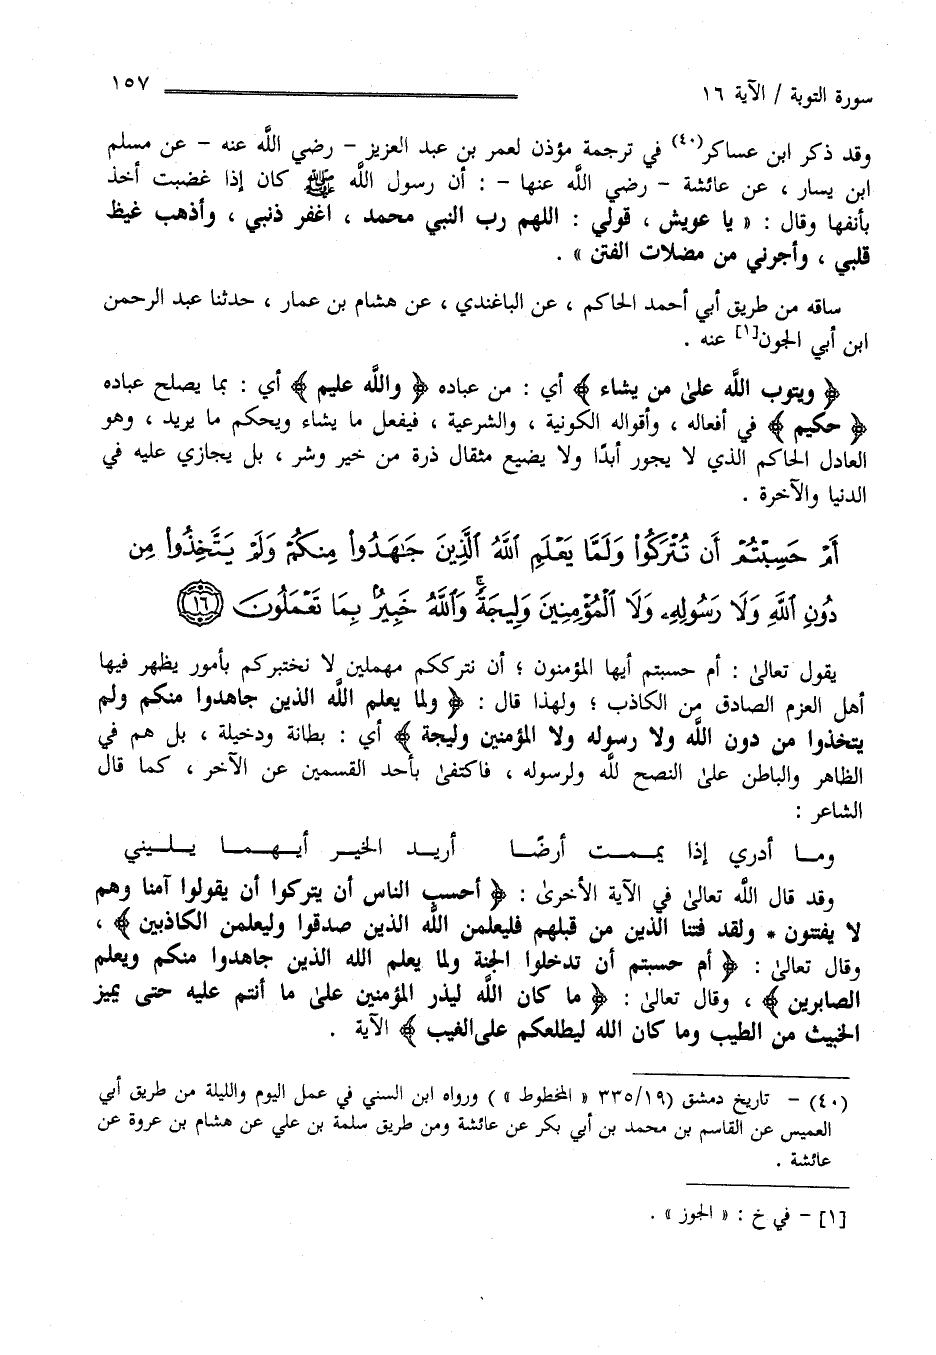 سورة التوبة / الآية ١٦ ١٥٧
وقد ذكر ابن عساكر(٤٠) في ترجمة مؤذن لعمر بن عبد العزيز – رضي اللَّه عنه – عن مسلم
ابن يسار ، عن عائشة – رضي اللَّه عنها – : أن رسول اللَّه ﷺ كان إذا غضبت أخذ
بأنفها وقال : « يا عويش ، قولي : اللهم رب النبي محمد ، اغفر ذنبي ، وأذهب غيظ
قلبي ، وأجرني من مضلات الفتن » .
ساقه من طريق أبي أحمد الحاكم ، عن الباغندي ، عن هشام بن عمار ، حدثنا عبد الرحمن
ابن أبي الجون[١] عنه .
﴿ ويتوب اللَّه علىٰ من يشاء ﴾ أي : من عباده ﴿ واللَّه عليم ﴾ أي : بما يصلح عباده
﴿ حكيم ﴾ في أفعاله ، وأقواله الكونية ، والشرعية ، فيفعل ما يشاء ويحكم ما يريد ، وهو
العادل الحاكم الذي لا يجور أبدًا ولا يضيع مثقال ذرة من خير وشر ، بل يجازي عليه في
الدنيا والآخرة .
أَمْ حَسِبْتُمْ أَن تُتْرَكُوا۟ وَلَمَّا يَعْلَمِ ٱللَّهُ ٱلَّذِينَ جَٰهَدُوا۟ مِنكُمْ وَلَمْ يَتَّخِذُوا۟ مِن
دُونِ ٱللَّهِ وَلَا رَسُولِهِۦ وَلَا ٱلْمُؤْمِنِينَ وَلِيجَةً ۚ وَٱللَّهُ خَبِيرٌۢ بِمَا تَعْمَلُونَ ١٦
يقول تعالىٰ : أم حسبتم أيها المؤمنون ؛ أن نترككم مهملين لا نختبركم بأمور يظهر فيها
أهل العزم الصادق من الكاذب ؛ ولهذا قال : ﴿ ولما يعلم اللَّه الذين جاهدوا منكم ولم
يتخذوا من دون اللَّه ولا رسوله ولا المؤمنين وليجة ﴾ أي : بطانة ودخيلة ، بل هم في
الظاهر والباطن علىٰ النصح للَّه ولرسوله ، فاكتفىٰ بأحد القسمين عن الآخر ، كما قال
الشاعر :
ومـا أدري إذا يممـت أرضًـا أريـد الخيـر أيهـمـا يـلـيني
وقد قال اللَّه تعالىٰ في الآية الأخرىٰ : ﴿ أحسب الناس أن يتركوا أن يقولوا آمنا وهم
لا يفتنون * ولقد فتنا الذين من قبلهم فليعلمن اللَّه الذين صدقوا وليعلمن الكاذبين ﴾ ،
وقال تعالىٰ : ﴿ أم حسبتم أن تدخلوا الجنة ولما يعلم الله الذين جاهدوا منكم ويعلم
الصابرين ﴾ ، وقال تعالىٰ : ﴿ ما كان اللَّه ليذر المؤمنين علىٰ ما أنتم عليه حتى يميز
الخبيث من الطيب وما كان الله ليطلعكم على الغيب ﴾ الآية .
(٤٠) – تاريخ دمشق (٣٣٥/١٩ « المخطوط » ) ورواه ابن السني في عمل اليوم والليلة من طريق أبي
العميس عن القاسم بن محمد بن أبي بكر عن عائشة ومن طريق سلمة بن علي عن هشام بن عروة عن
عائشة .
[١] – في خ : « الجوز » .